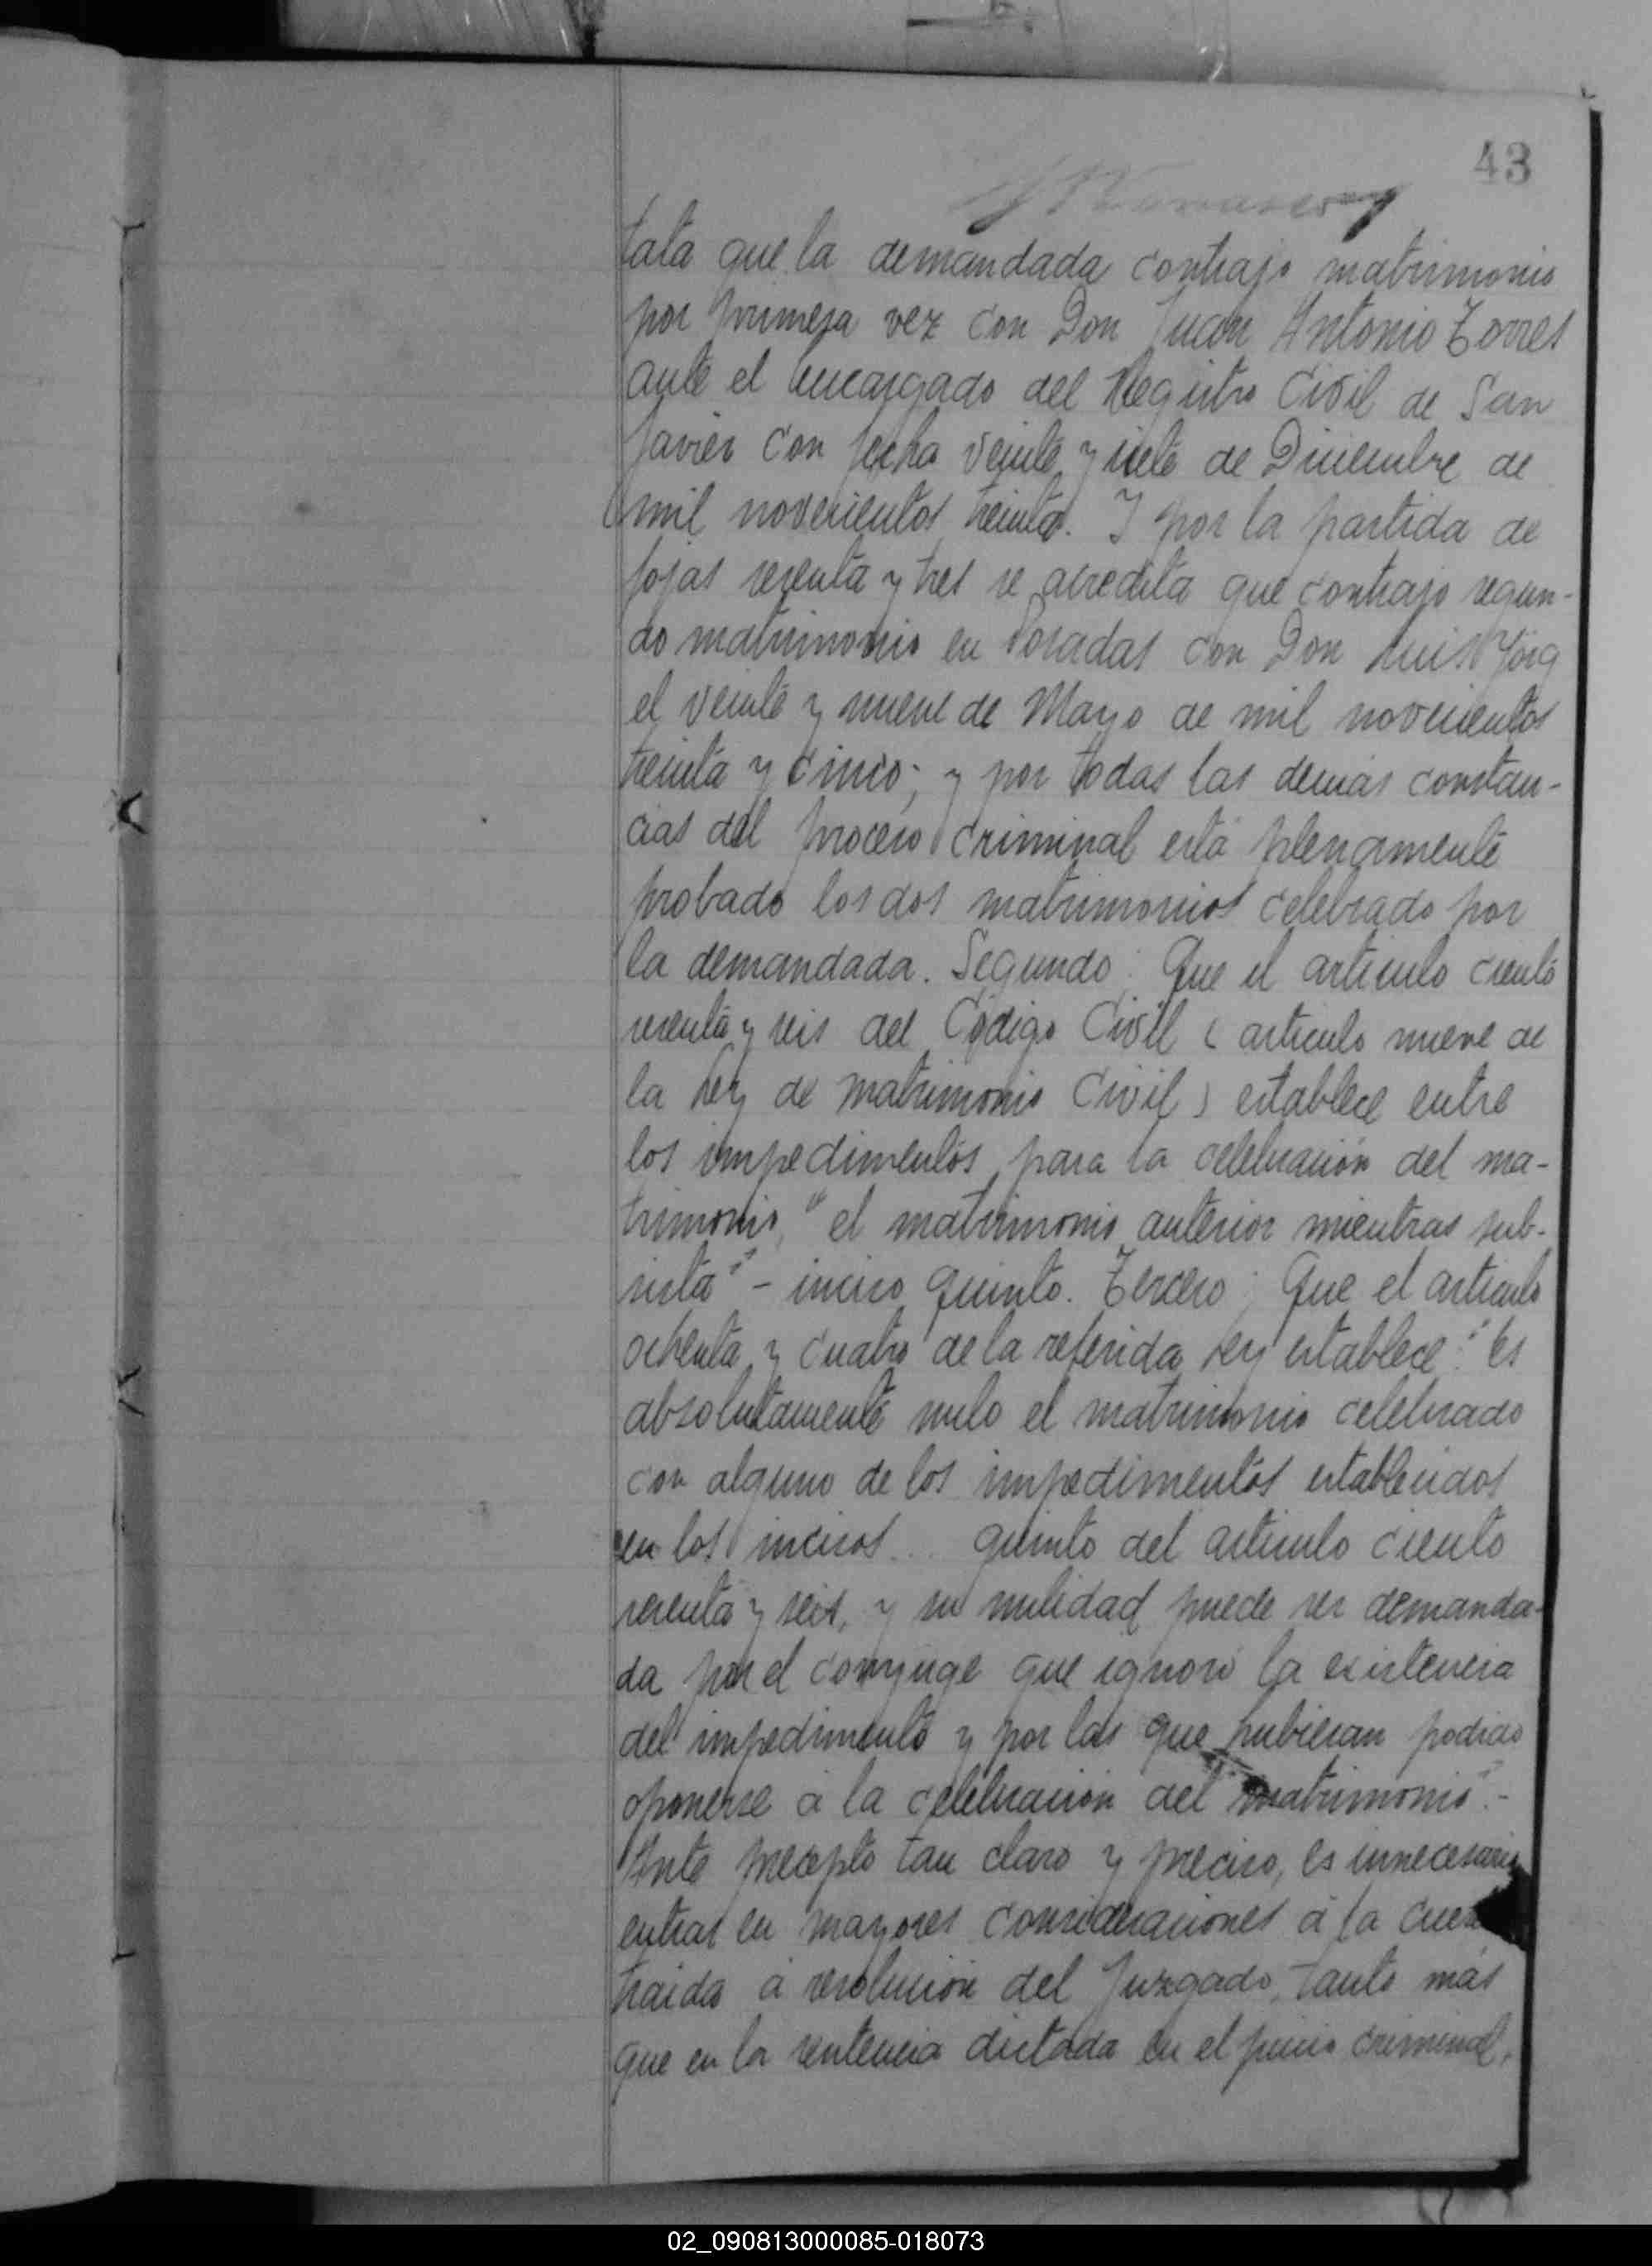 43
tata que la demandada contrajo matrimonio
por primera vez con Don Juan Antonio Torres
ante el encargado del Registro Civil de San
Javier con fecha veinte y siete de Diciembre de
mil novecientos treinta. I por la partida de
fojas sesenta y tres se acredita que contrajo segun-
do matrimonio en Posadas con Don Luis Jörg
el veinte y nueve de Mayo de mil novecientos
treinta y cinco; y por todas las demás constan-
cias del proceso criminal está plenamente
probado los dos matrimonios celebrado por
la demandada. Segundo: Que el artículo ciento
sesenta y seis del Código Civil (artículo nueve de
la Ley de Matrimonio Civil) establece entre
los impedimentos para la celebración del ma-
trimonio, "el matrimonio anterior mientras sub-
sista" - inciso quinto. Tercero: Que el artículo
ochenta y cuatro de la referida Ley establece: "Es
absolutamente nulo el matrimonio celebrado
con alguno de los impedimentos establecidos
en los incisos... quinto del artículo ciento
sesenta y seis, y su nulidad puede ser demanda-
da por el conyuge que ignoró la existencia
del impedimento y por los que hubieran podido
oponerse á la celebración del matrimonio".-
Ante precepto tan claro y preciso, es innecesario
entrar en mayores consideraciones á la
traida á resolución del Juzgado, tanto más
que en la sentencia dictada en el juicio criminal,
02_090813000085-018073